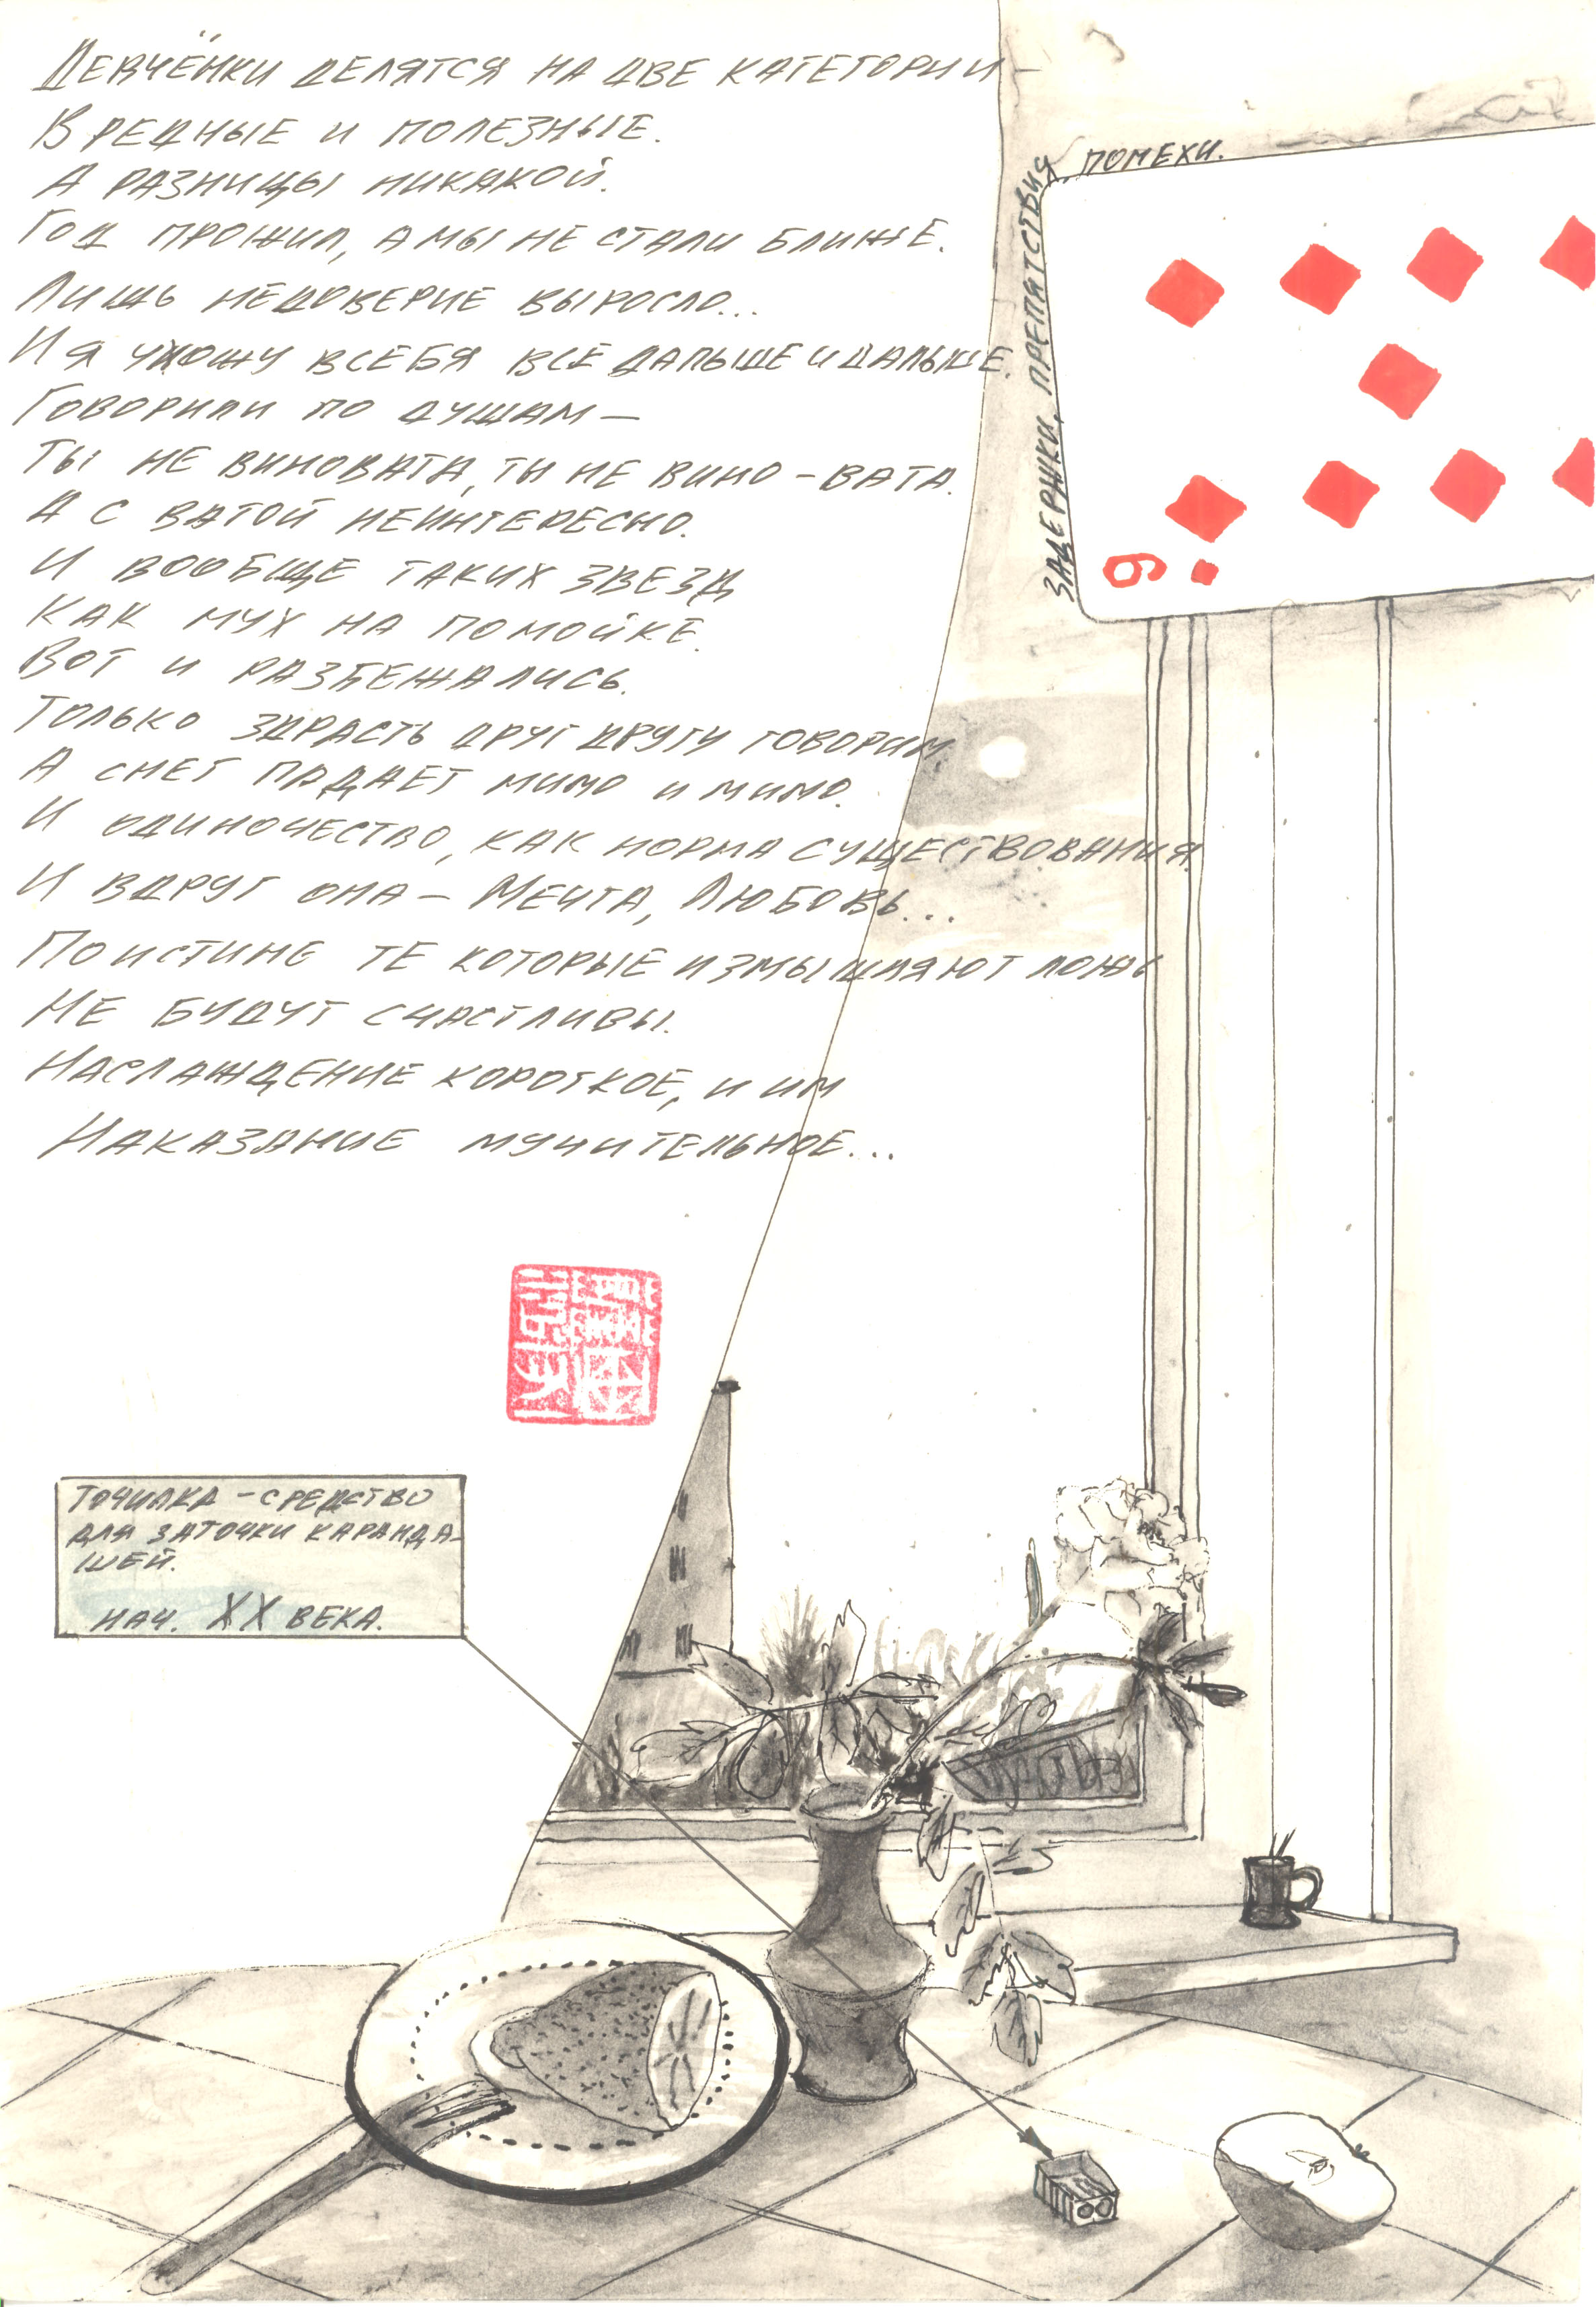 Девчёнки делятся на две категории –
Вредные и полезные.
А разницы никакой.
Год прожил, а мы не стали ближе.
Лишь недоверие выросло...
И я ухожу в себя всё дальше и дальше.
Говорили по душам –
Ты не виновата, ты не вино – вата.
А с ватой неинтересно.
И вообще таких звезд
Как мух на помойке.
Вот и разбежались.
Только здрасть друг другу говорим,
А снег падает мимо и мимо.
И одиночество, как норма существования
И вдруг она – Мечта, Любовь...
Поистине те которые измышляют ложь
Не будут счастливы.
Наслаждение короткое, и им
Наказание мучительное...
Задержки, препятствия, помехи.
9
Точилка – средство
для заточки каранда-
шей.
нач. XX века.